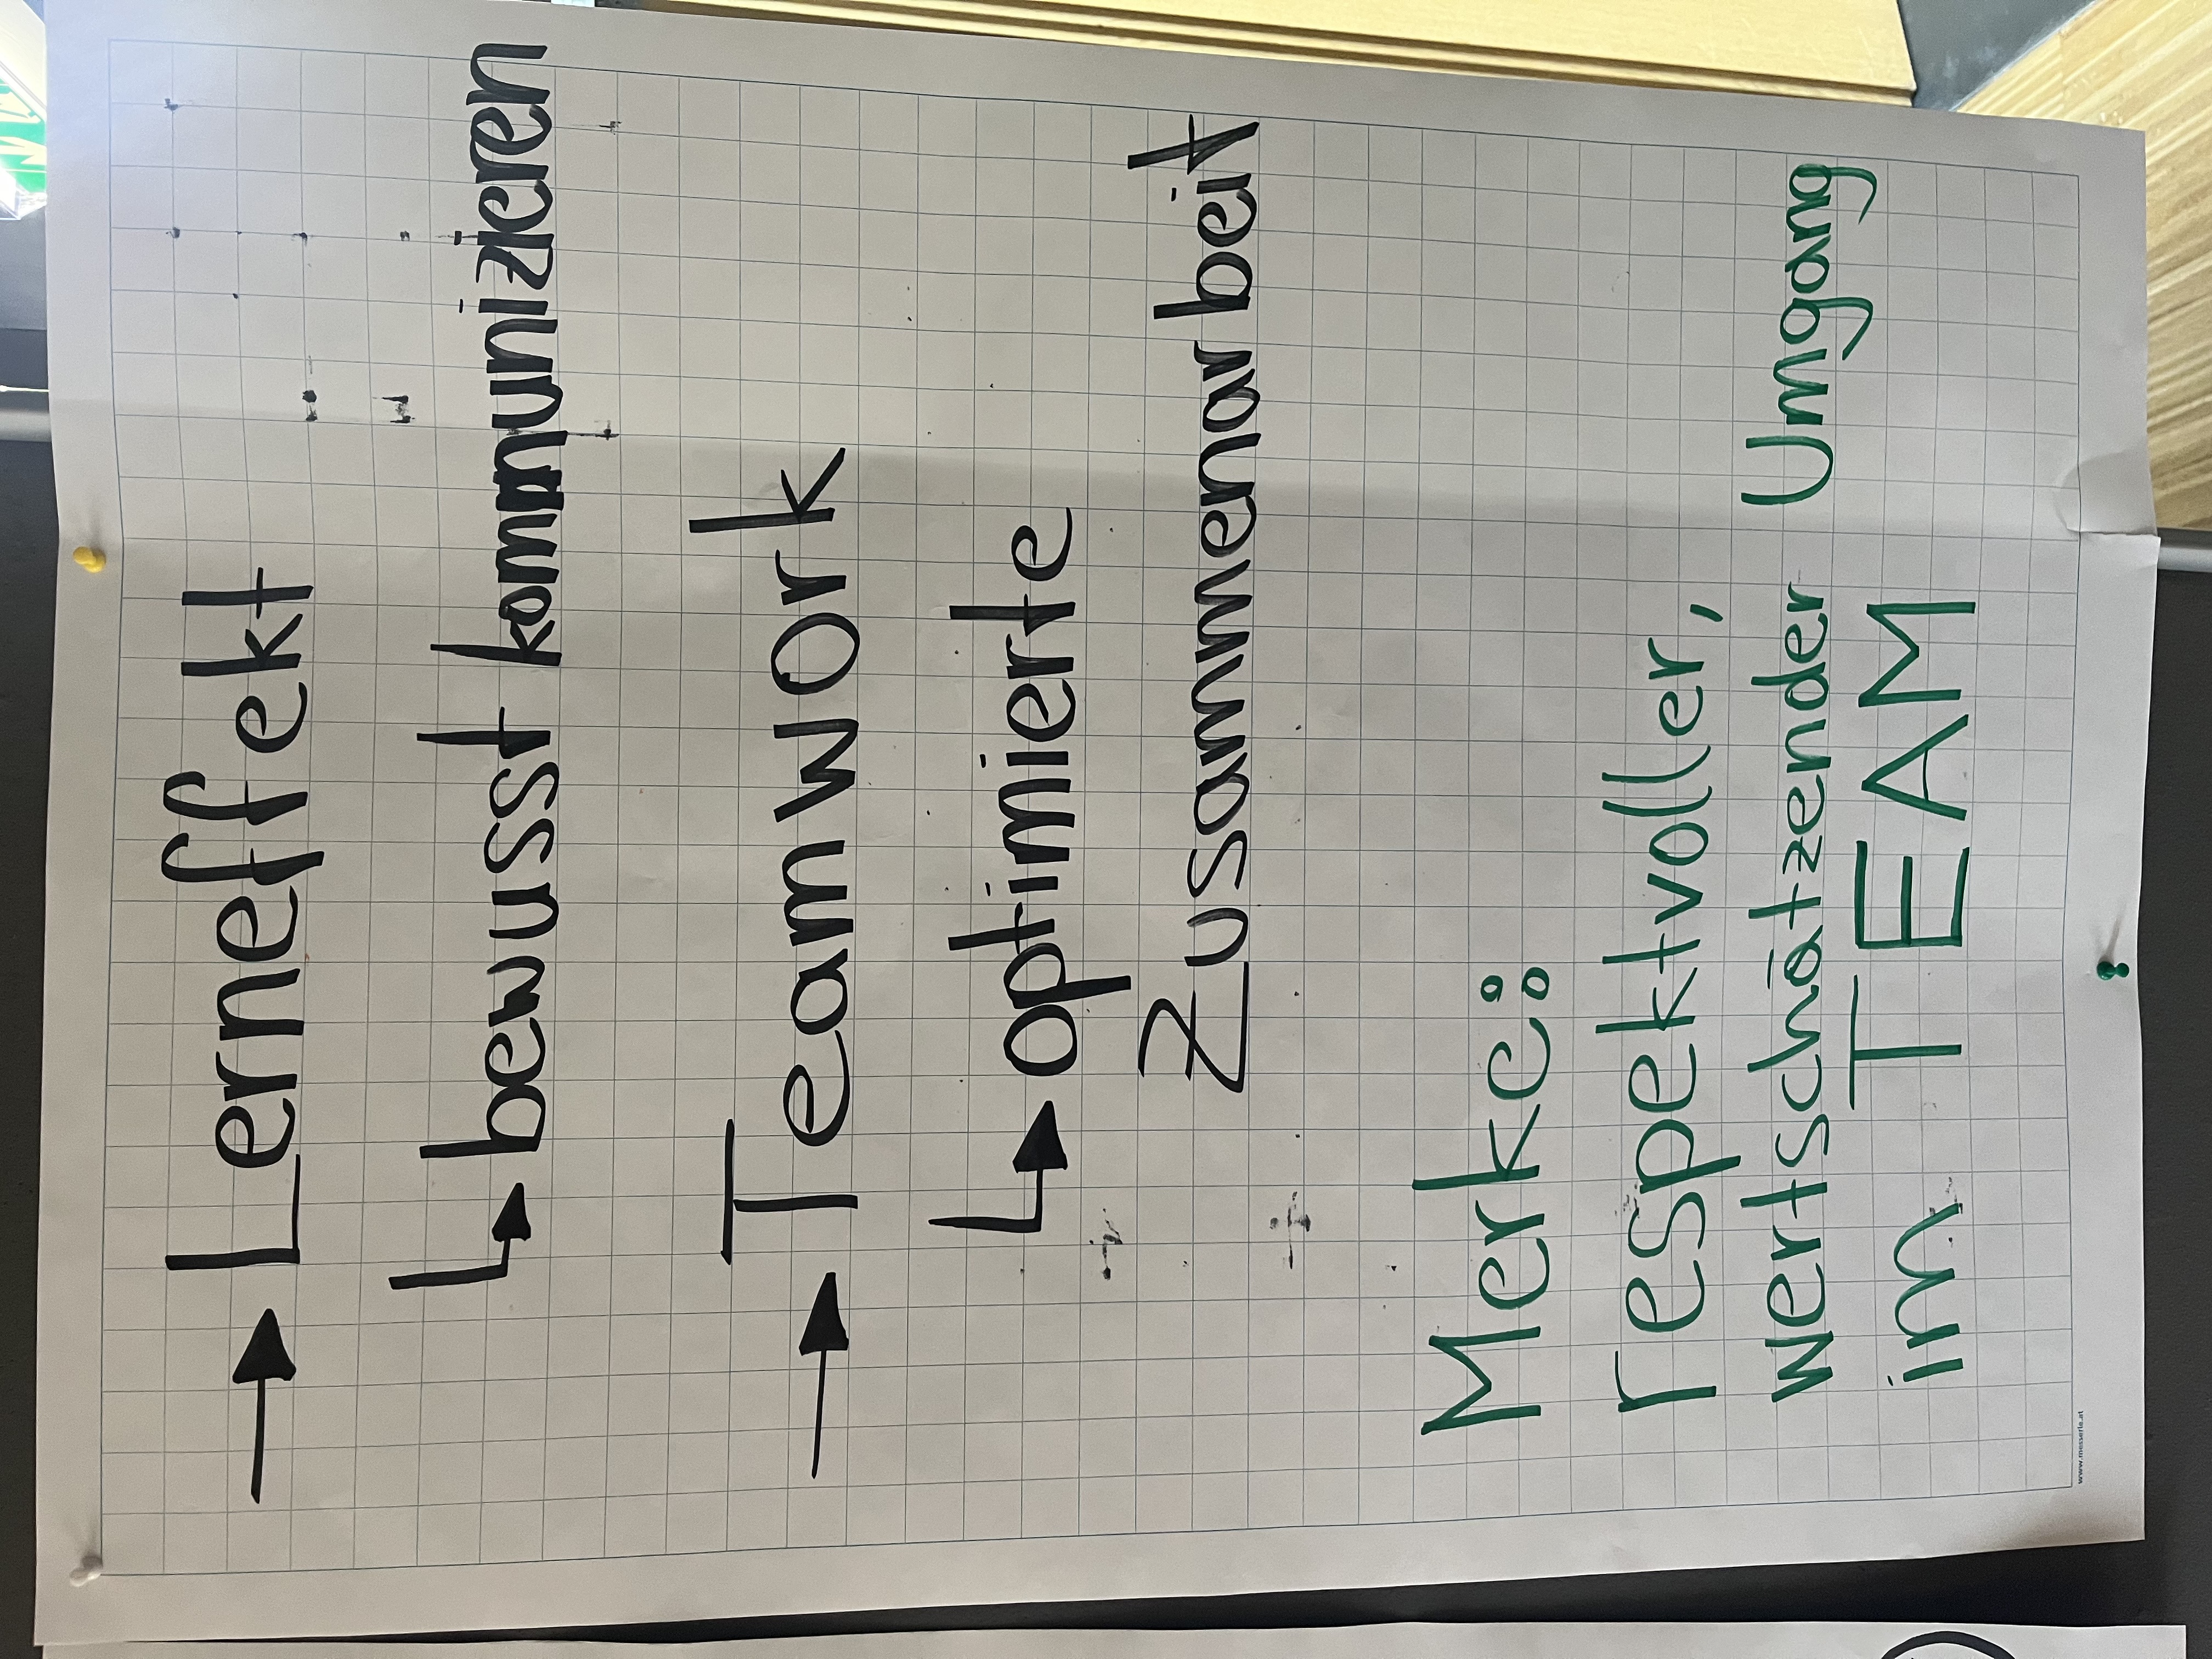 → Lerneffekt
↳ bewusst kommunizieren
→ Teamwork
↳ optimierte
Zusammenarbeit
Merke:
respektvoller,
wertschätzender Umgang
im TEAM
www.messerle.at